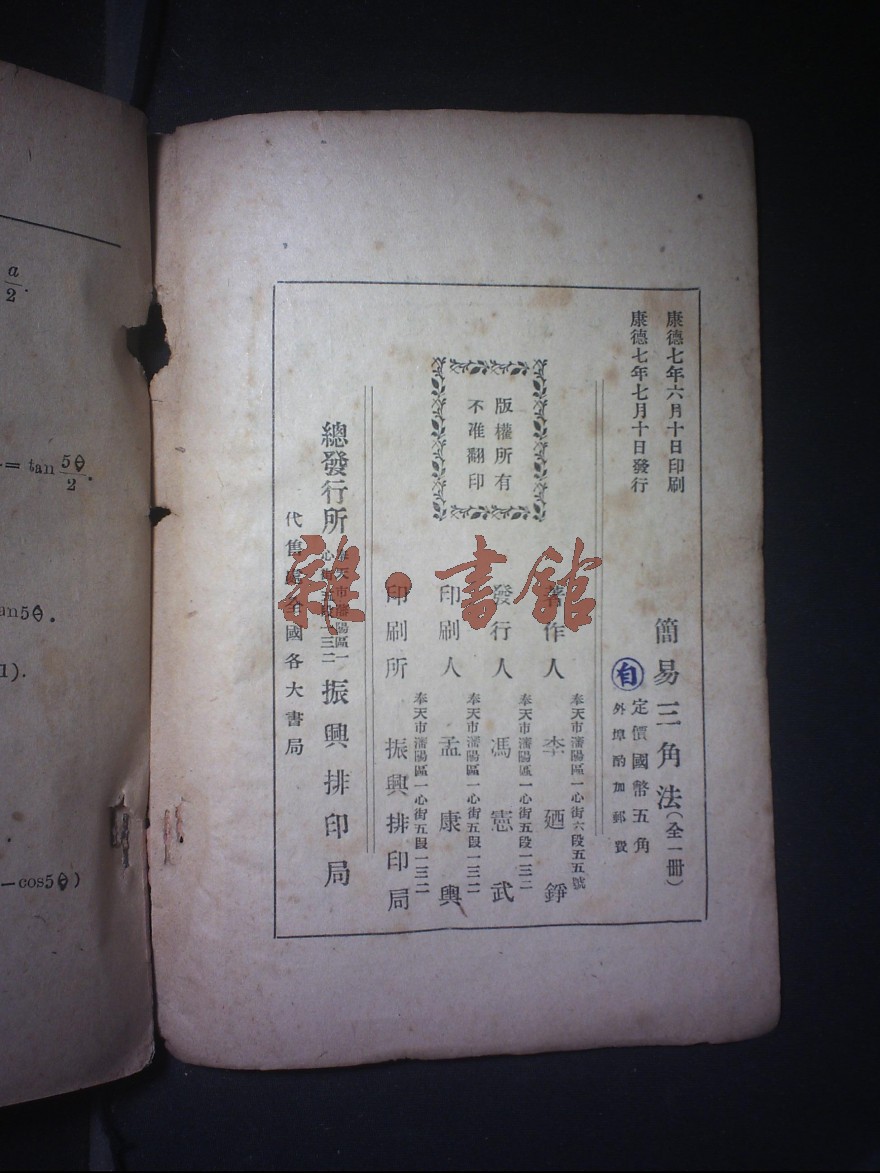 康德七年六月十日印刷
康德七年七月十日發行
簡易三角法(全一冊)
定價國幣五角
外埠酌加郵費
自
版權所有
不准翻印
著作人 李廼錚
奉天市瀋陽區一心街六段五五號
發行人 馮憲武
奉天市瀋陽區一心街五段一三二
印刷人 孟康興
奉天市瀋陽區一心街五段一三二
印刷所 振興排印局
奉天市瀋陽區一心街五段一三二
總發行所 振興排印局
奉天市瀋陽區一
心街五段一三二
代售處全國各大書局
雜·書館
a/2.
= tan 5θ/2.
an5θ.
1).
-cos5θ)